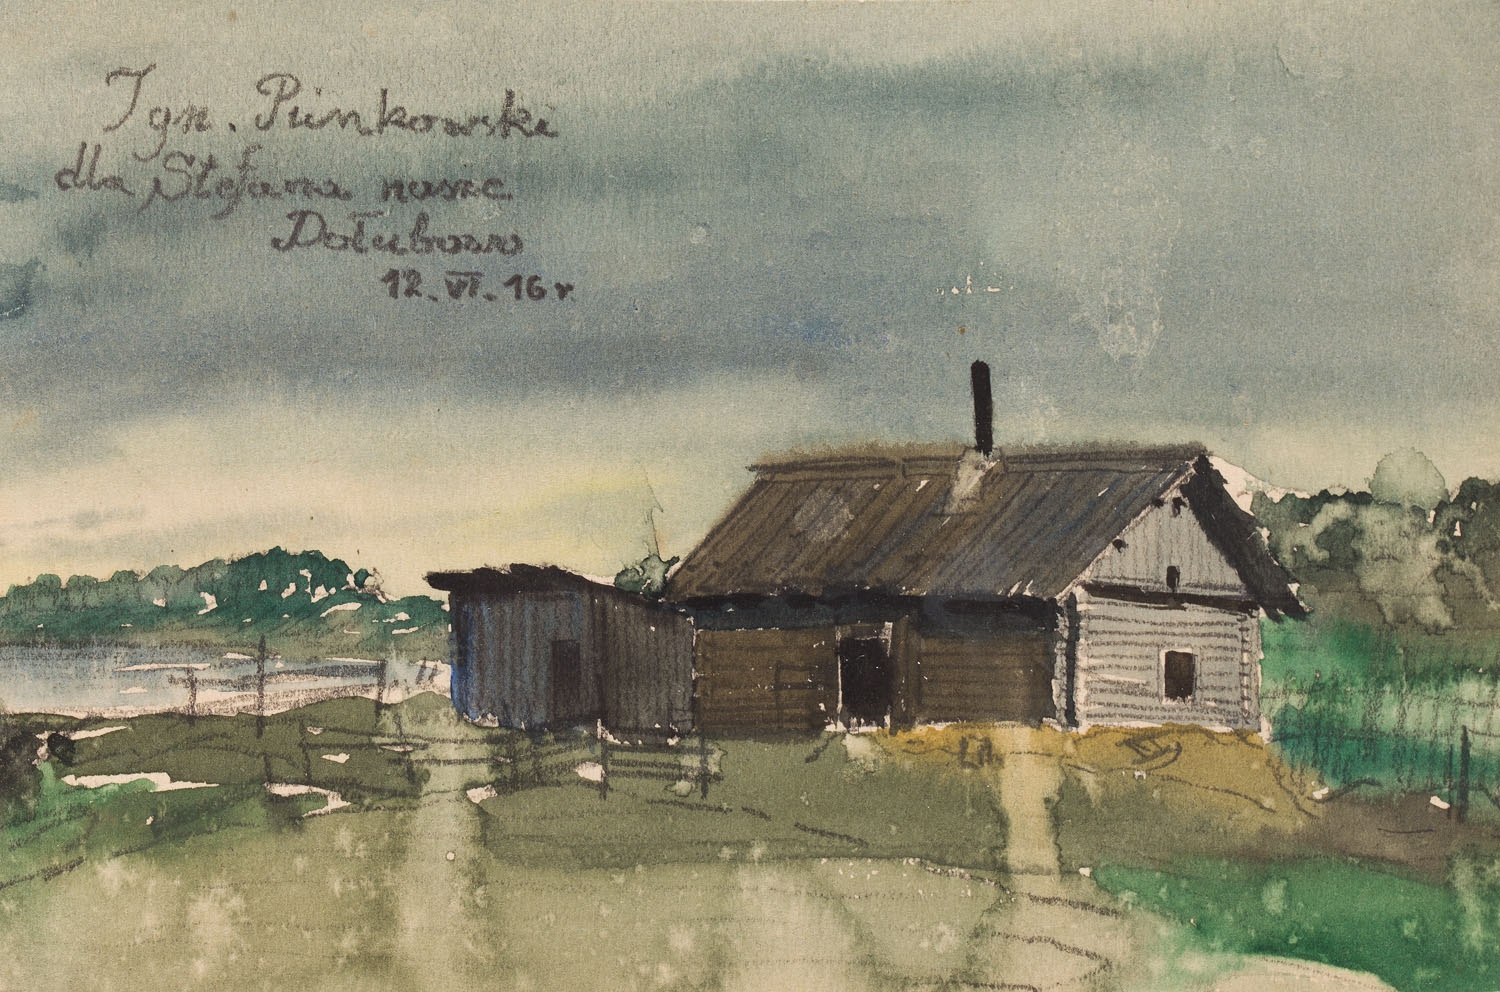 Ign. Pinkowski
dla Stefana nasze
Dołubowo
12.VI.16 r.